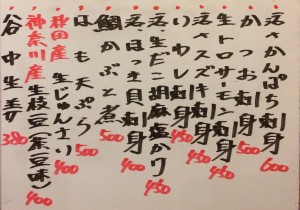 活さかんぱち刺身 600
かつお刺身 500
生トロサーモン刺身 450
活スズキ刺身 450
いわし刺身 450
活、生だこ胡麻塩かけ 450
活、ほっき貝刺身 400
鯛かぶと煮 500
はも天ぷら 500
秋田産 生じゅんさい 400
神奈川産 生枝豆(茶豆味) 400
谷中生姜 380